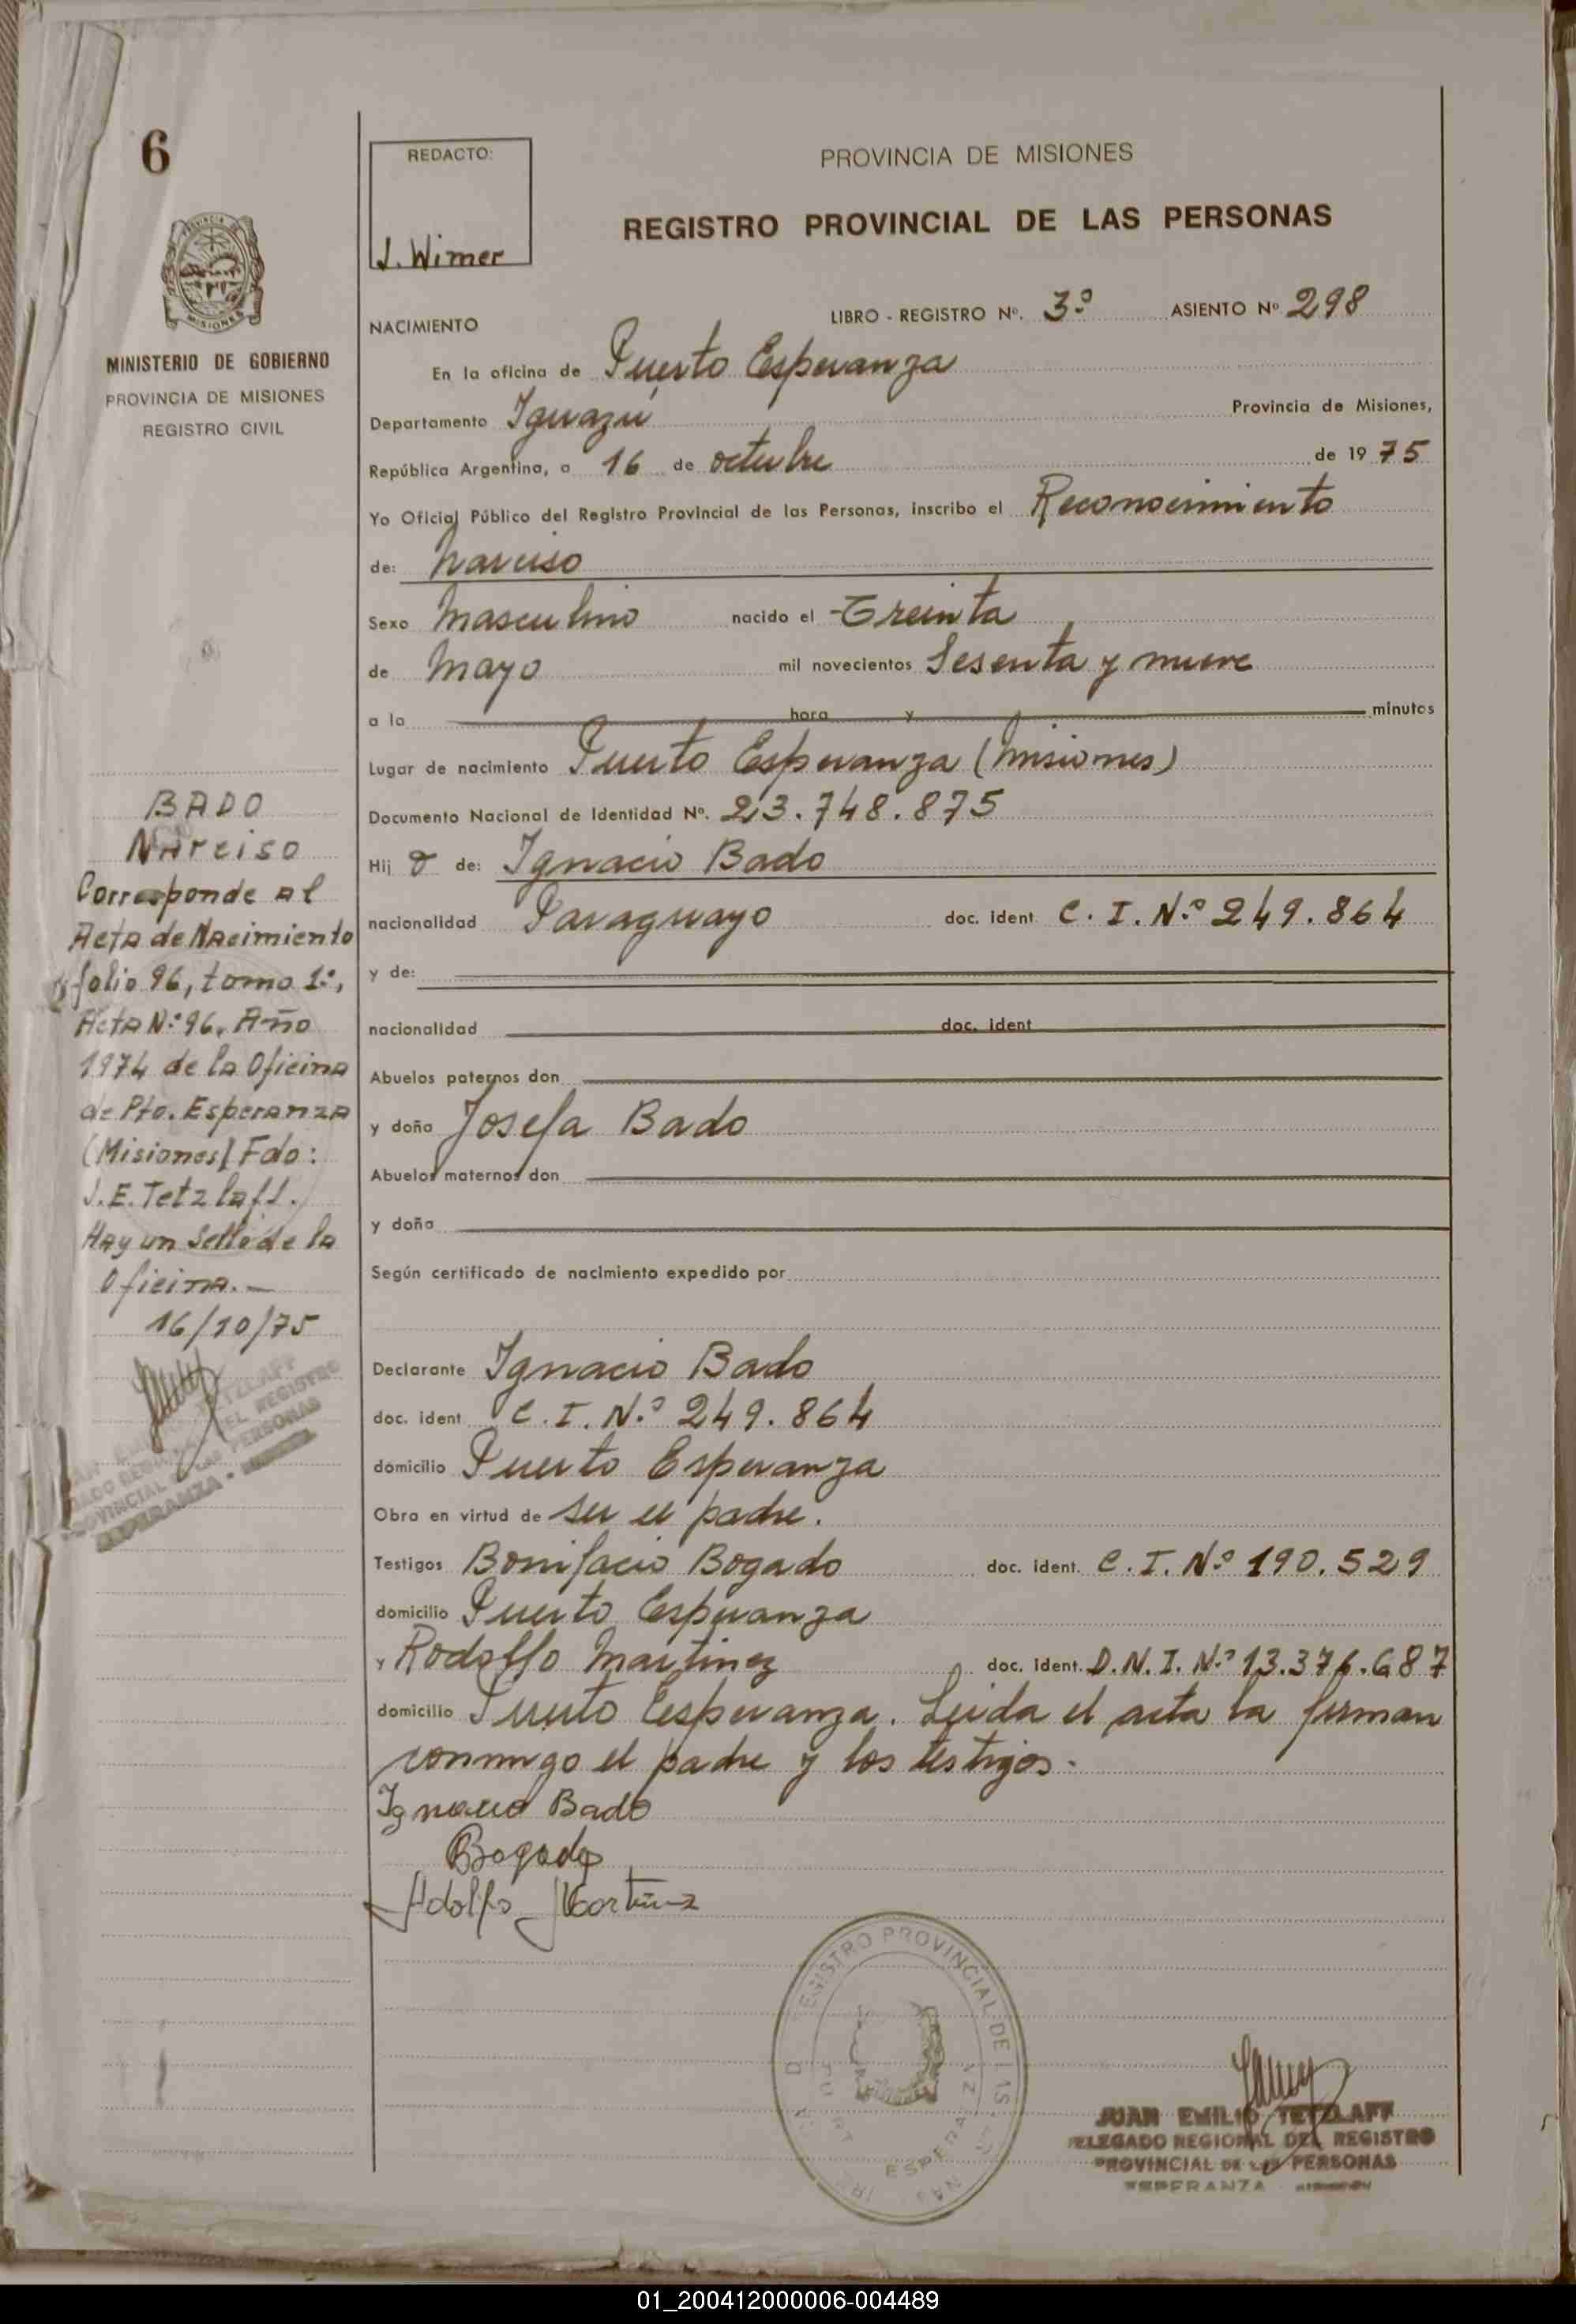 6
MINISTERIO DE GOBIERNO
PROVINCIA DE MISIONES
REGISTRO CIVIL
BADO
Narciso
Corresponde al
Acta de Nacimiento
folio 96, tomo 1º,
Acta Nº 96, Año
1974 de la Oficina
de Pto. Esperanza
(Misiones) Fdo:
J. E. Tetzlaff.
Hay un Sello de la
Oficina.-
16/10/75
REDACTO:
J. Wimer
PROVINCIA DE MISIONES
REGISTRO PROVINCIAL DE LAS PERSONAS
NACIMIENTO LIBRO - REGISTRO Nº. 3º ASIENTO Nº 298
En la oficina de Puerto Esperanza
Departamento Iguazú Provincia de Misiones,
República Argentina, a 16 de octubre de 1975
Yo Oficial Público del Registro Provincial de las Personas, inscribo el Reconocimiento
de: Narciso
Sexo Masculino nacido el Treinta
de Mayo mil novecientos Sesenta y nueve
a la hora y minutos
Lugar de nacimiento Puerto Esperanza (Misiones)
Documento Nacional de Identidad Nº. 23.748.875
Hijo de: Ignacio Bado
nacionalidad Paraguayo doc. ident. C. I. Nº 249.864
y de:
nacionalidad doc. ident
Abuelos paternos don
y doña Josefa Bado
Abuelos maternos don
y doña
Según certificado de nacimiento expedido por
Declarante Ignacio Bado
doc. ident C. I. Nº 249.864
domicilio Puerto Esperanza
Obra en virtud de ser el padre.
Testigos Bonifacio Bogado doc. ident. C. I. Nº 190.529
domicilio Puerto Esperanza
y Rodolfo Martinez doc. ident. D. N. I. Nº 13.376.687
domicilio Puerto Esperanza. Leida el acta la firman
conmigo el padre y los testigos.
Ignacio Bado
Bogado
Adolfo Martinez
JUAN EMILIO TETZLAFF
DELEGADO REGIONAL DEL REGISTRO
PROVINCIAL DE LAS PERSONAS
ESPERANZA
01_200412000006-004489